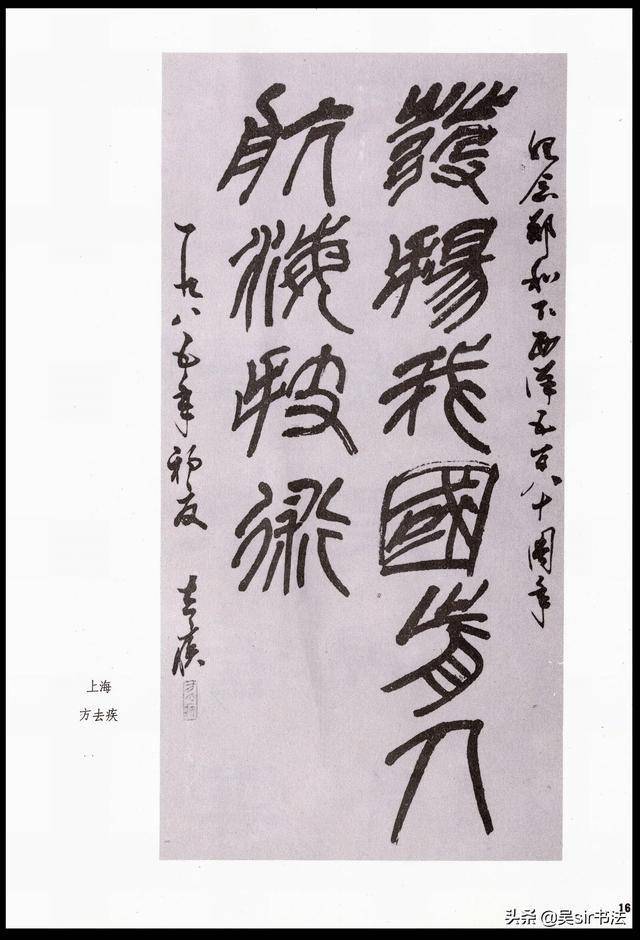 紀念鄭和下西洋五百八十周年
發揚我國前人
航海技術
一九八五年初夏 去疾
上海
方去疾
16
头条 @吴sir书法